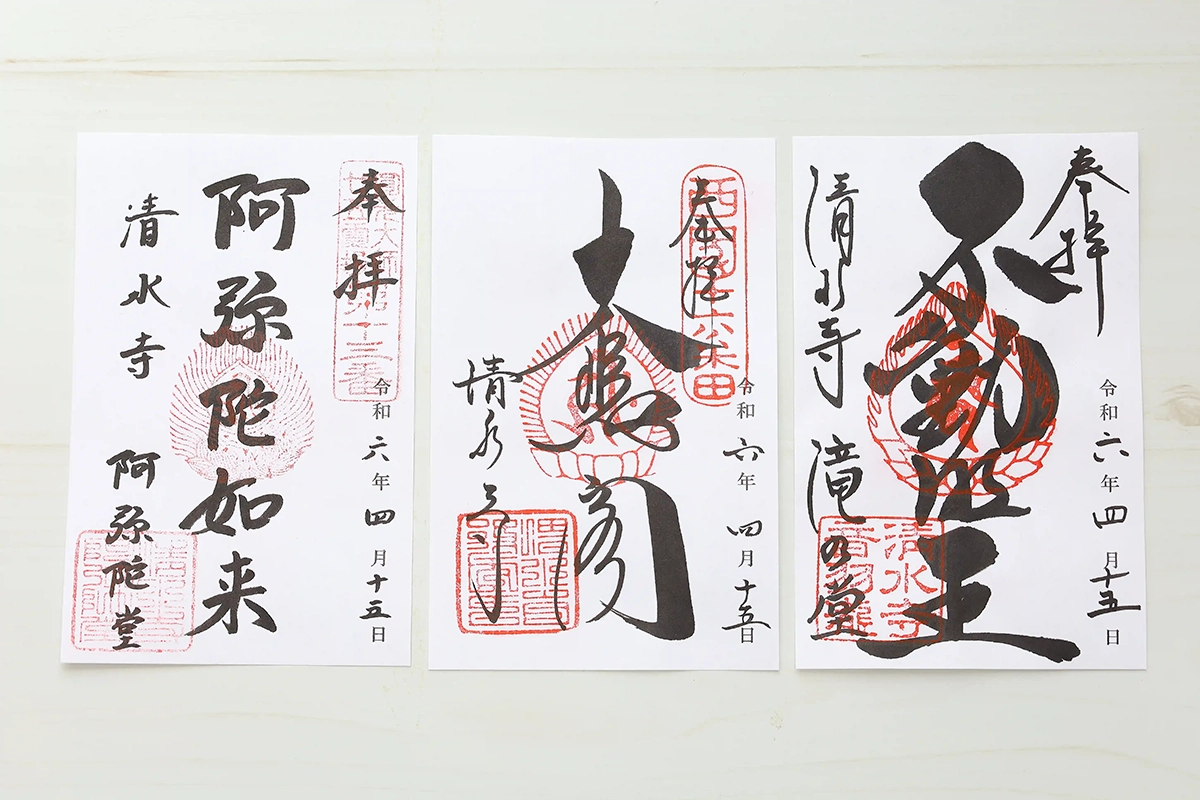 奉拝
令和六年四月十五日
阿弥陀如来
清水寺 阿弥陀堂
奉拝
令和六年四月十五日
大悲閣
清水寺
奉拝
令和六年四月十五日
不動明王
清水寺 滝の堂
清水寺